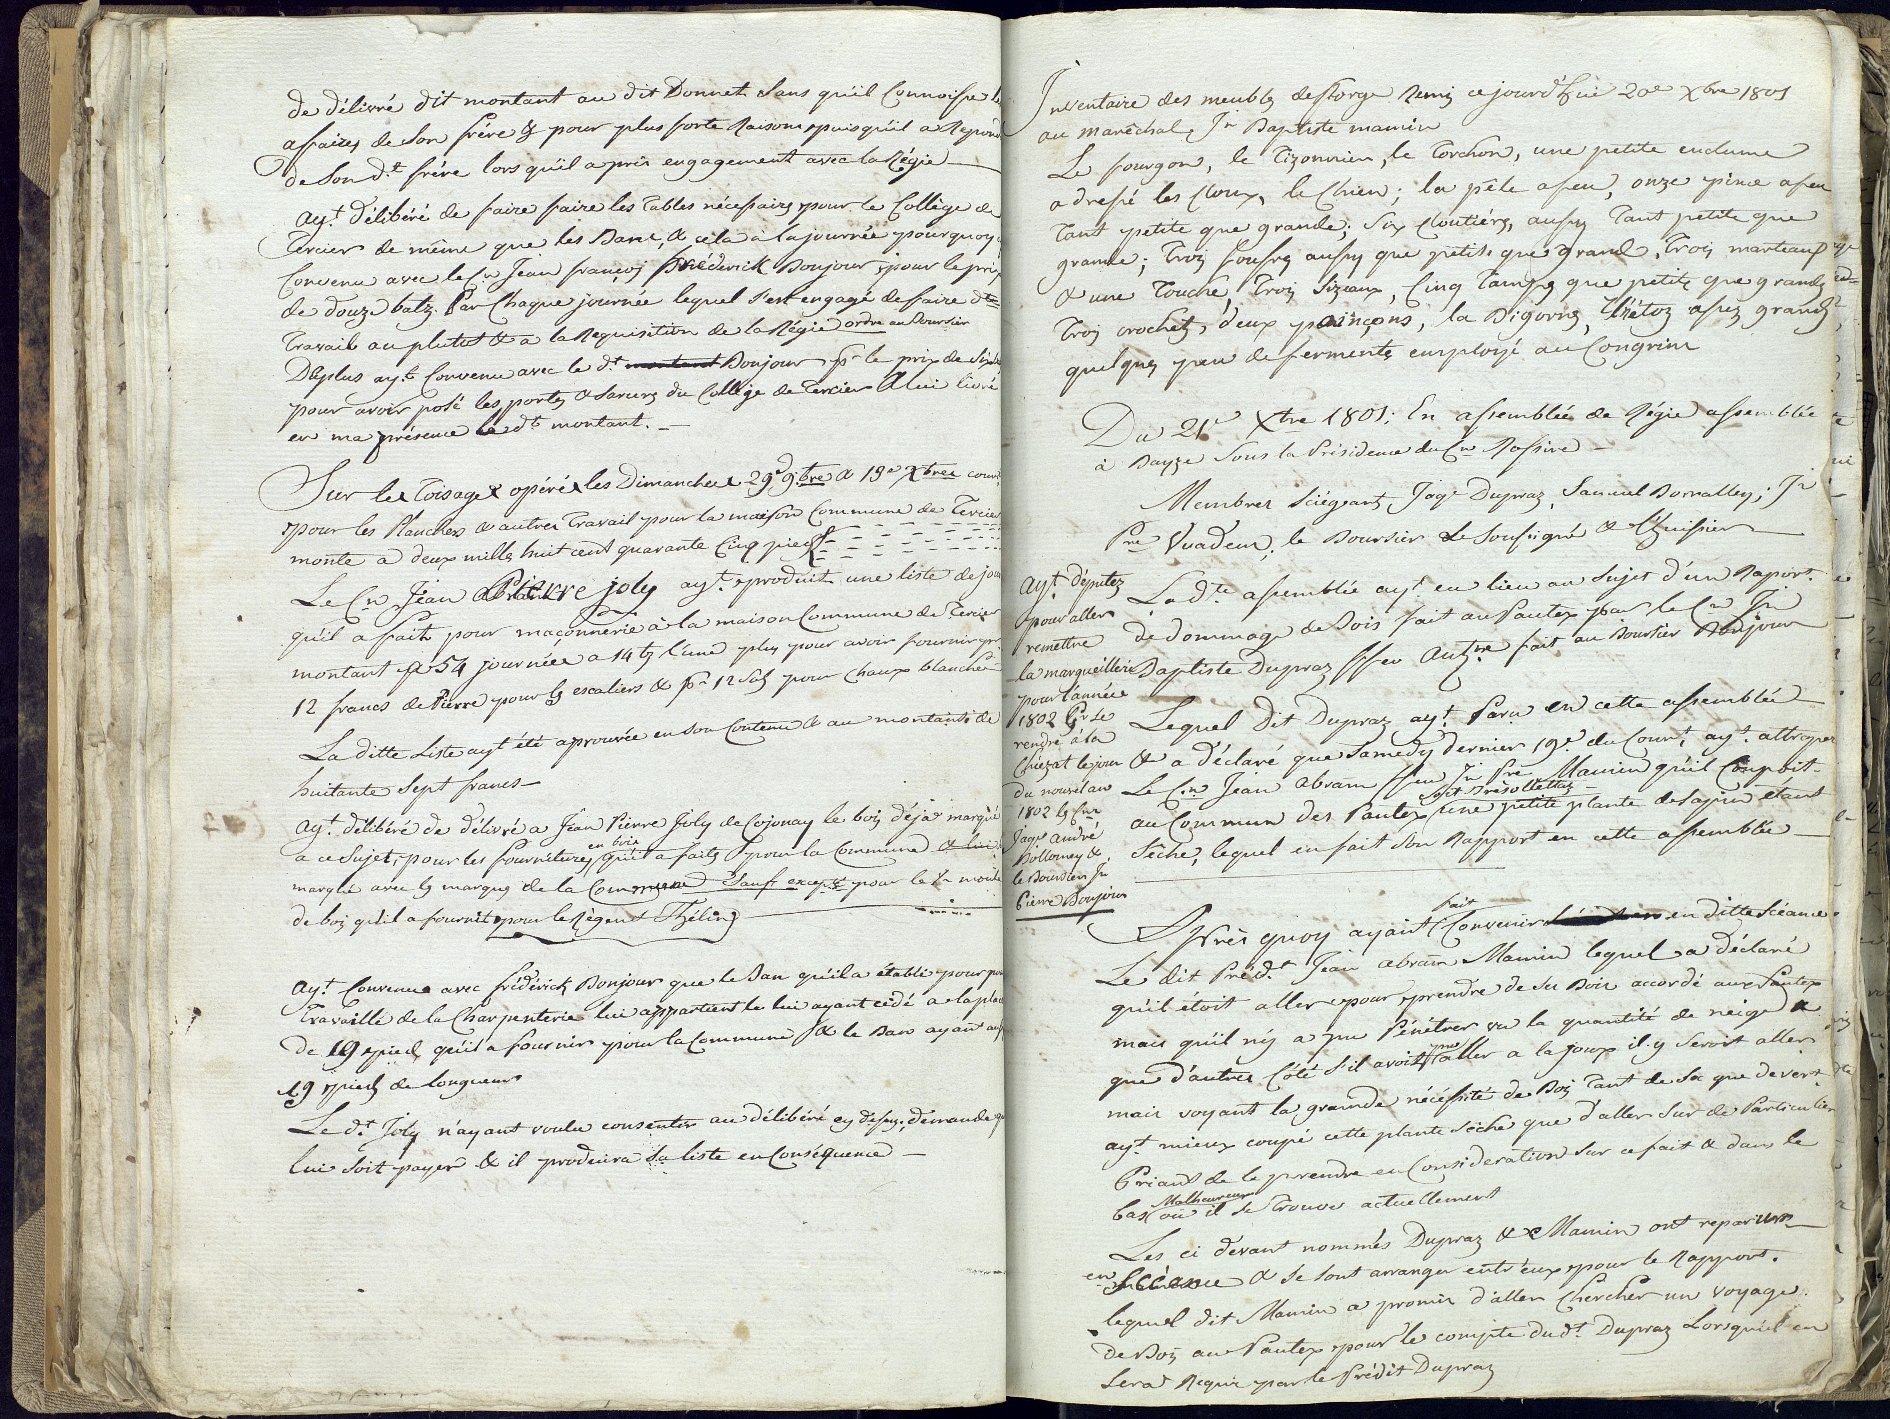 de délivré dit montant au dit Donnet sans qu'il Connoisse le
affaires de Son frére & pour plus forte Raison puisqu'il a Repond
de Son d.t frére lors qu'il a pris engagement avec la Régie
ay.t délibéré de faire faire les Tables nécessaires pour le Collège de
Tercier de même que les Banc, & cela à la journée pourquoy
Convenu avec le C.n Jean françois fréderick Bonjour pour le prix
de douze batz Par Chaque journée lequel s'est engagé de faire d.t
Travail au plutot & a la Requisition de la Régie ordre au Boursier
Déplus ay.t Convenu avec le d.t montant Bonjour p.r le prix de
pour avoir posé les portes & Sarures du Collége de Tercier A lui livré
en ma présence le d.t montant. —
Sur les Toisages opérés les Dimanches 29e 9bre & 19e Xbres cour
pour les Planches & autres Travail pour la maison Commune de Tercier
monte a deux mille huit cent quarante Cinq pieds
Le C.n Jean Pierre joly ay.t produit une liste de jou
qu'il a fait pour maconnerie à la maison Commune de Tercier
montant p.r 54 journées a 14 bz l'une plus pour avoir fournir
12 francs de Pierre pour les escaliers & p.r 12 Sols pour Chaux blanche
La ditte Liste ayt été aprouvée en son Contenu & au montant de
huitante Sept francs —
ay.t délibéré de délivré a Jean Pierre Joly de Cojonay le bois déja marqué
a ce Sujet, pour les fournitures en bois qu'il a faits pour la Commune & lui
marqué avec les marques de la Commune Sauf excepté pour le monte
de bois qu'il a fournit pour le Régent Thélin
ay.t Convenu avec fréderick Bonjour que le Ban qu'il a établi pour pou
Travaillé de la Charpenterie lui appartient le lui ayant cédé a la plac
de 19 pieds qu'il a fournir pour la Commune & le Ban ayant au
19 pieds de longueur
Le d.t Joly n'ayant voulu consentir au délibéré cy dessus, demande qu
lui soit payer & il produira Sa liste en Conséquence —
Inventaire des meubles de Forge Remis ce jourd'hui 20e Xbre 1801
au maréchal, Jn Baptiste mamin
Le fourgon, le Tizonnier, le Torchon, une petite enclume
a dressé les Cloux, le Chien; la pêle a feu, onze pince a feu
Tant petite que grande; Six Cloutiére, aussy Tant petite que
grande; Trois Soufres aussy que petits que grand, Trois marteaux
& une Touche, Trois Sizeaux, Cinq Tamps que petits que grands
Trois crochets, deux poinçons, la Bigorne, l'Etoz assez grand
quelques peu de ferments employé au Congrin
Du 21e Xbre 1801; En assemblée de Régie assemblée
à Bayze Sous la Présidence du C.n Rossire —
Membres Siégeant, Jaqs Dupraz, Samuel Borralley; Jn
Pre Vuadens, le Boursier Le Soussigné & l'huissier —
La d.te assemblée ay.t eu lieu au Sujet d'un Raport
de dommage de Bois fait au Pautex par le C.n Jn
Baptiste Dupraz ffeu Antne fait au Boursier Bonjour
ay.t députez
pour aller
remettre
la margueillerie
pour l'année
1802 Pr Se
rendre à la
Chiezat le jour
du nouvel an
1802 les C.ns
Jaqs André
Bolomey &
le Boursier Jn
Pierre Bonjour
Lequel Dit Dupraz ay.t Paru en cette assemblée
& a déclaré que Samedy dernier 19e du Cour.t ay.t attraper
Le C.n Jean abram ffeu Jn Pre Mamin qu'il Coupoit
au Commun des Pautex dit Brésollettaz une petite plante de Sapin étant
Séche, lequel en fait Son Rapport en cette assemblée —
Après quoy ayant fait Convenir en ditte Scéance
Le dit Préd.t Jean abram Mamin lequel a déclaré
qu'il étoit aller pour prendre de Ses Bois accordé aux Pautex
mais qu'il n'y a pu Pénétrer vu la quantité de neige &
que d'autres Côté s'il avoit pu aller a la joux il y Seroit aller
mais voyant la grande nécéssité de Bois Tant de Sec que de vert
ay.t mieux coupé cette plante Séche que d'aller Sur de Particulier
Priant de le prendre en Considération Sur ce fait & dans le
Cas Malheureux où il Se Trouve actuellement
Les ci devant nommés Dupraz & Mamin ont reparus
en Scéance & se sont arranger entr'eux pour le Rapport.
lequel dit Mamin a promis d'aller Chercher un voyage
de Bois au Pautex pour le compte dud.t Dupraz Lorsqu'il en
Sera Requis par le Prédit Dupraz